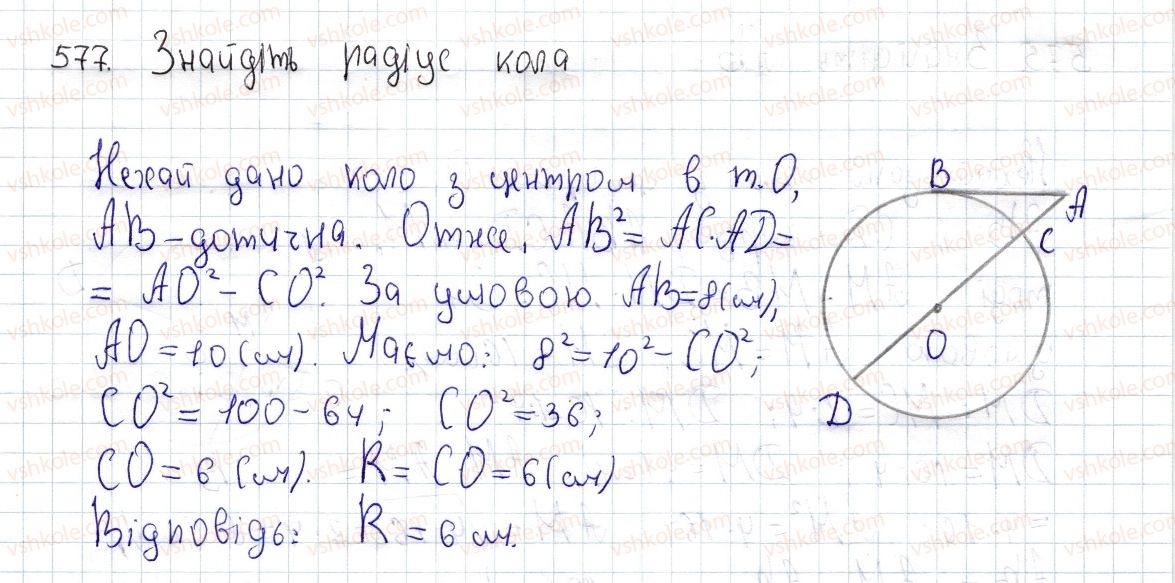 577. Знайдіть радіус кола
Нехай дано коло з центром в т.О,
АВ – дотична. Отже, АВ² = АС·АD =
= АО² – СО². За умовою АВ = 8 (см),
АО = 10 (см). Маємо: 8² = 10² – СО²;
СО² = 100 – 64; СО² = 36;
СО = 6 (см). R = СО = 6 (см)
Відповідь: R = 6 см.
B
A
C
O
D
vshkole.com